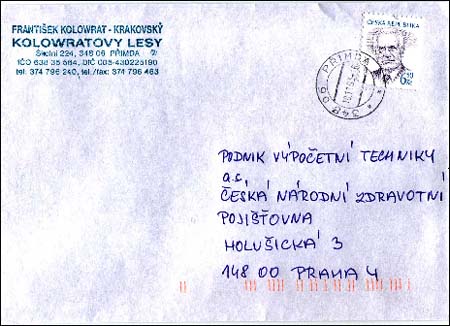 FRANTIŠEK KOLOWRAT - KRAKOVSKÝ
KOLOWRATOVY LESY
Školní 224, 348 06 PŘIMDA
tel. 374 796 240, tel./fax: 374 796 463
ČESKÁ REPUBLIKA
348 06 PŘIMDA
PODNIK VÝPOČETNÍ TECHNIKY
a.s.
ČESKÁ NÁRODNÍ ZDRAVOTNÍ
POJIŠŤOVNA
HOLUŠICKÁ 3
148 00 PRAHA 4